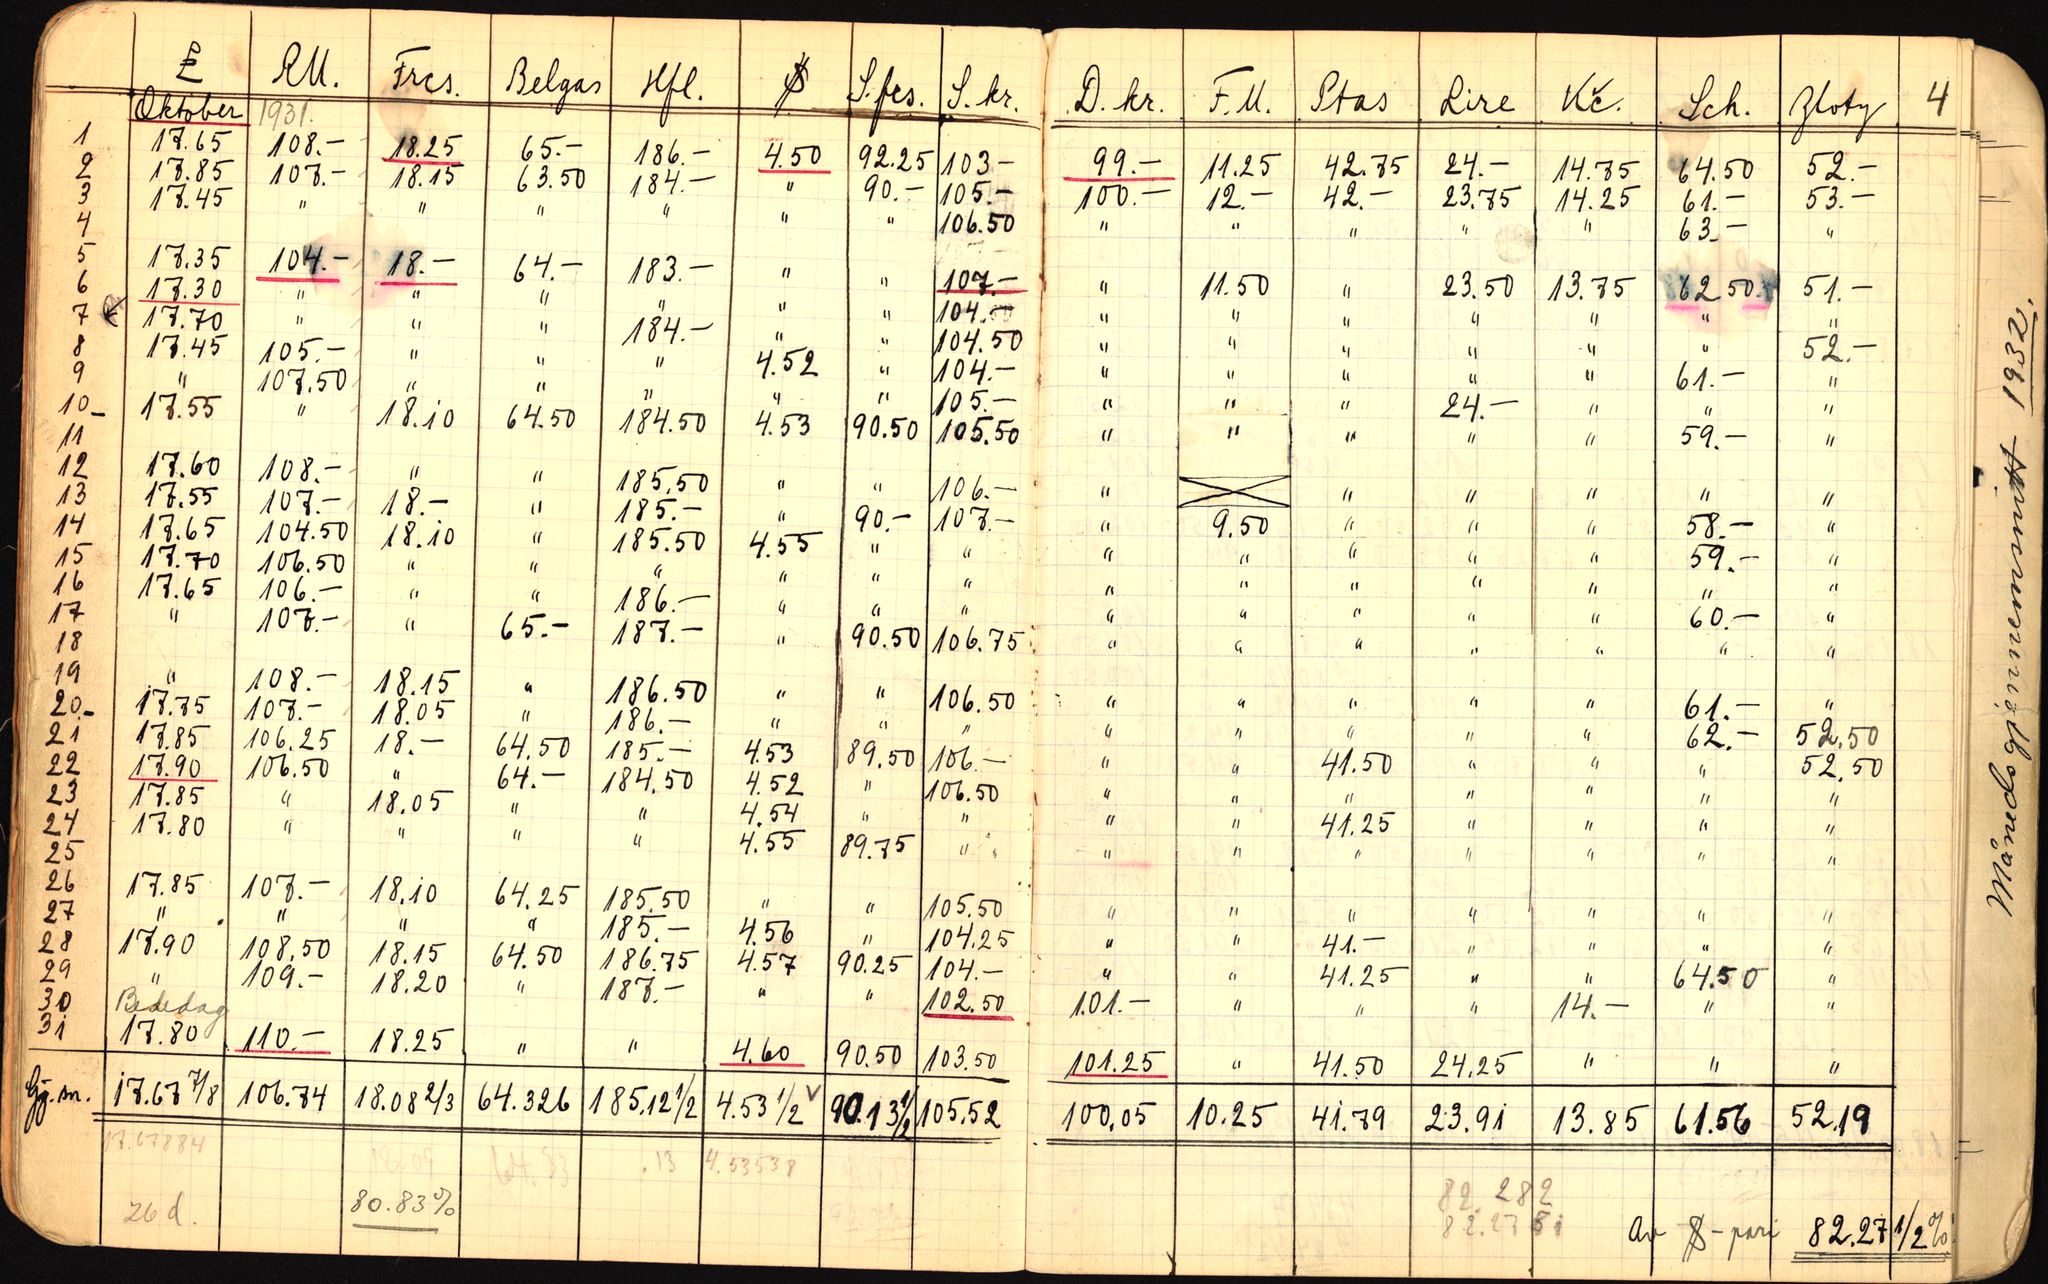 £ RM. Frcs. Belgas Hfl. $ S.fcs. S.kr. D.kr. F.M. Ptas Lire Kč. Sch. Zloty 4
Oktober 1931.
1 17.65 108.- 18.25 65.- 186.- 4.50 92.25 103- 99.- 11.25 42.75 24.- 14.75 64.50 52.-
2 17.85 107.- 18.15 63.50 184.- " 90.- 105.- 100.- 12.- 42.- 23.75 14.25 61.- 53.-
3 17.45 " " " " " " 106.50 " " " " " 63.- "
4
5 17.35 104.- 18.- 64.- 183.- " " 107.- " 11.50 " 23.50 13.75 62.50 51.-
6 17.30 " " " " " " 104.- " " " " " " "
7 17.70 " " " 184.- " " 104.50 " " " " " " 52.-
8 17.45 105.- " " " 4.52 " 104.- " " " " " 61.- "
9 " 107.50 " " " " " 105.- " " " 24.- " " "
10- 17.55 " 18.10 64.50 184.50 4.53 90.50 105.50 " " " " " 59.- "
11
12 17.60 108.- " " 185.50 " " 106.- " " " " " "
13 17.55 107.- 18.- " 185.- " 90.- 107.- " 9.50 " " " 58.- "
14 17.65 104.50 18.10 " 185.50 4.55 " " " " " " " 59.- "
15 17.70 106.50 " " " " " " " " " " " " "
16 17.65 106.- " " 186.- " " " " " " " " 60.- "
17 " 107.- " 65.- 187.- " 90.50 106.75 " " " " " " "
18
19 " 108.- 18.15 " 186.50 " " 106.50 " " " " " 61.- "
20- 17.75 107.- 18.05 " 186.- " " " " " " " " 62.- 52.50
21 17.85 106.25 18.- 64.50 185.- 4.53 89.50 106.- " " 41.50 " " " 52.50
22 17.90 106.50 " 64.- 184.50 4.52 " 106.50 " " " " " " "
23 17.85 " 18.05 " " 4.54 " " " " 41.25 " " " "
24 17.80 " " " " 4.55 89.75 " " " " " " " "
25
26 17.85 107.- 18.10 64.25 185.50 " " 105.50 " " " " " " "
27 " " " " 185.- 4.56 " 104.25 " " 41.- " " " "
28 17.90 108.50 18.15 64.50 186.75 4.57 90.25 104.- " " 41.25 " " 64.50 "
29 " 109.- 18.20 " 187.- " " 102.50 101.- " " " 14.- " "
30 Bededag
31 17.80 110.- 18.25 " " 4.60 90.50 103.50 101.25 " 41.50 24.25 " " "
Gj.sn. 17.67 7/8 106.74 18.08 2/3 64.326 185.12 1/2 4.53 1/2 90.13 1/2 105.52 100.05 10.25 41.79 23.91 13.85 61.56 52.19
17.67884 18.09 .13 4.53538
26 d. 80.83% 82.282
Av $-pari 82.27 1/2 %
Månedsgjennemsnitt 1932.